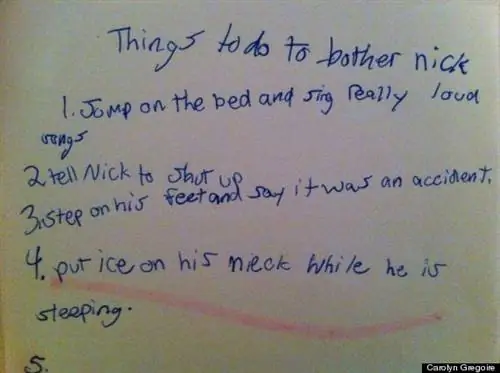 Things to do to bother nick
1. Jump on the bed and sing really loud
songs
2. tell Nick to shut up
3. step on his feet and say it was an accident.
4. put ice on his nieck while he is
sleeping.
5.
Carolyn Gregoire